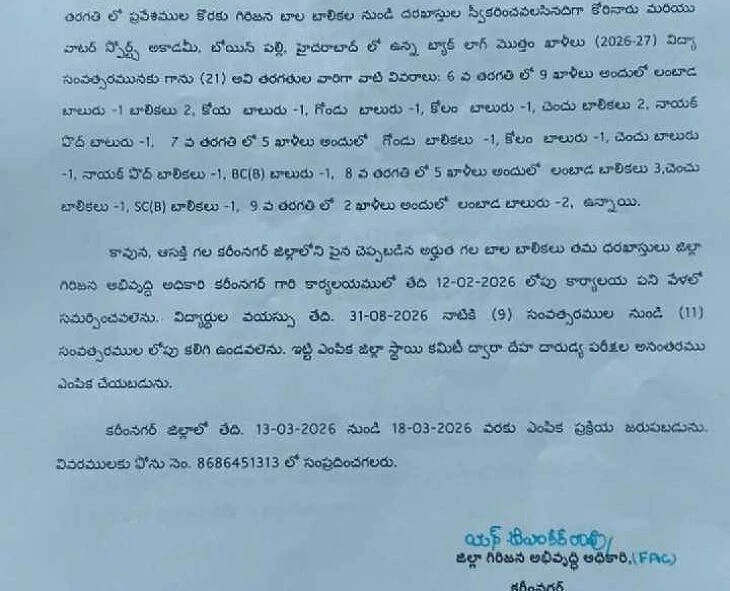 తరగతి లో ప్రవేశముల కొరకు గిరిజన బాల బాలికల నుండి దరఖాస్తుల స్వీకరించవలసినదిగా కోరినారు మరియు
వాటర్ స్పోర్ట్స్ అకాడమీ, బోయిన్ పల్లి, హైదరాబాద్ లో ఉన్న బ్యాక్ లాగ్ మొత్తం ఖాళీలు (2026-27) విద్యా
సంవత్సరమునకు గాను (21) అవి తరగతుల వారిగా వాటి వివరాలు: 6 వ తరగతి లో 9 ఖాళీలు అందులో లంబాడ
బాలురు -1 బాలికలు 2, కోయ బాలురు -1, గోండు బాలురు -1, కోలం బాలురు -1, చెందు బాలికలు 2, నాయక్
పోడ్ బాలురు -1, 7 వ తరగతి లో 5 ఖాళీలు అందులో గోండు బాలికలు -1, కోలం బాలురు -1, చెందు బాలురు
-1, నాయక్ పోడ్ బాలికలు -1, BC(B) బాలురు -1, 8 వ తరగతి లో 5 ఖాళీలు అందులో లంబాడ బాలికలు 3,చెంచు
బాలికలు -1, SC(B) బాలికలు -1, 9 వ తరగతి లో 2 ఖాళీలు అందులో లంబాడ బాలురు -2, ఉన్నాయి.
కావున, ఆసక్తి గల కరీంనగర్ జిల్లాలోని పైన చెప్పబడిన అర్హత గల బాల బాలికలు తమ దరఖాస్తులు జిల్లా
గిరిజన అభివృద్ధి అధికారి కరీంనగర్ గారి కార్యాలయములో తేది 12-02-2026 లోపు కార్యాలయ పని వేళలో
సమర్పించవలెను. విద్యార్థుల వయస్సు తేది. 31-08-2026 నాటికి (9) సంవత్సరముల నుండి (11)
సంవత్సరముల లోపు కలిగి ఉండవలెను. ఇట్టి ఎంపిక జిల్లా స్థాయి కమిటీ ద్వారా దేహ దారుడ్య పరీక్షల అనంతరము
ఎంపిక చేయబడును.
కరీంనగర్ జిల్లాలో తేది. 13-03-2026 నుండి 18-03-2026 వరకు ఎంపిక ప్రక్రియ జరుపబడును.
వివరములకు ఫోను నెం. 8686451313 లో సంప్రదించగలరు.
జిల్లా గిరిజన అభివృద్ధి అధికారి,(FAC)
కరీంనగర్